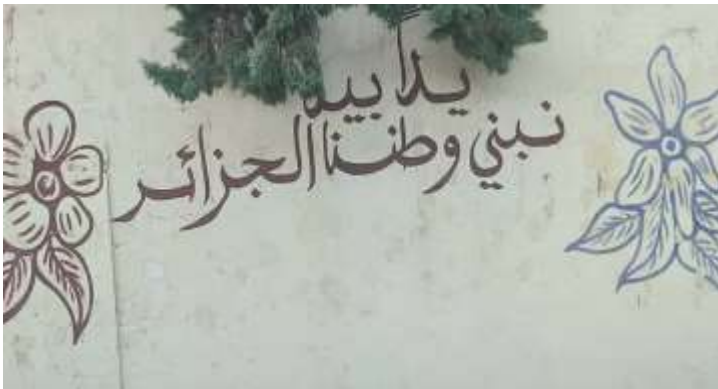 يدا بيد
نبني وطننا الجزائر